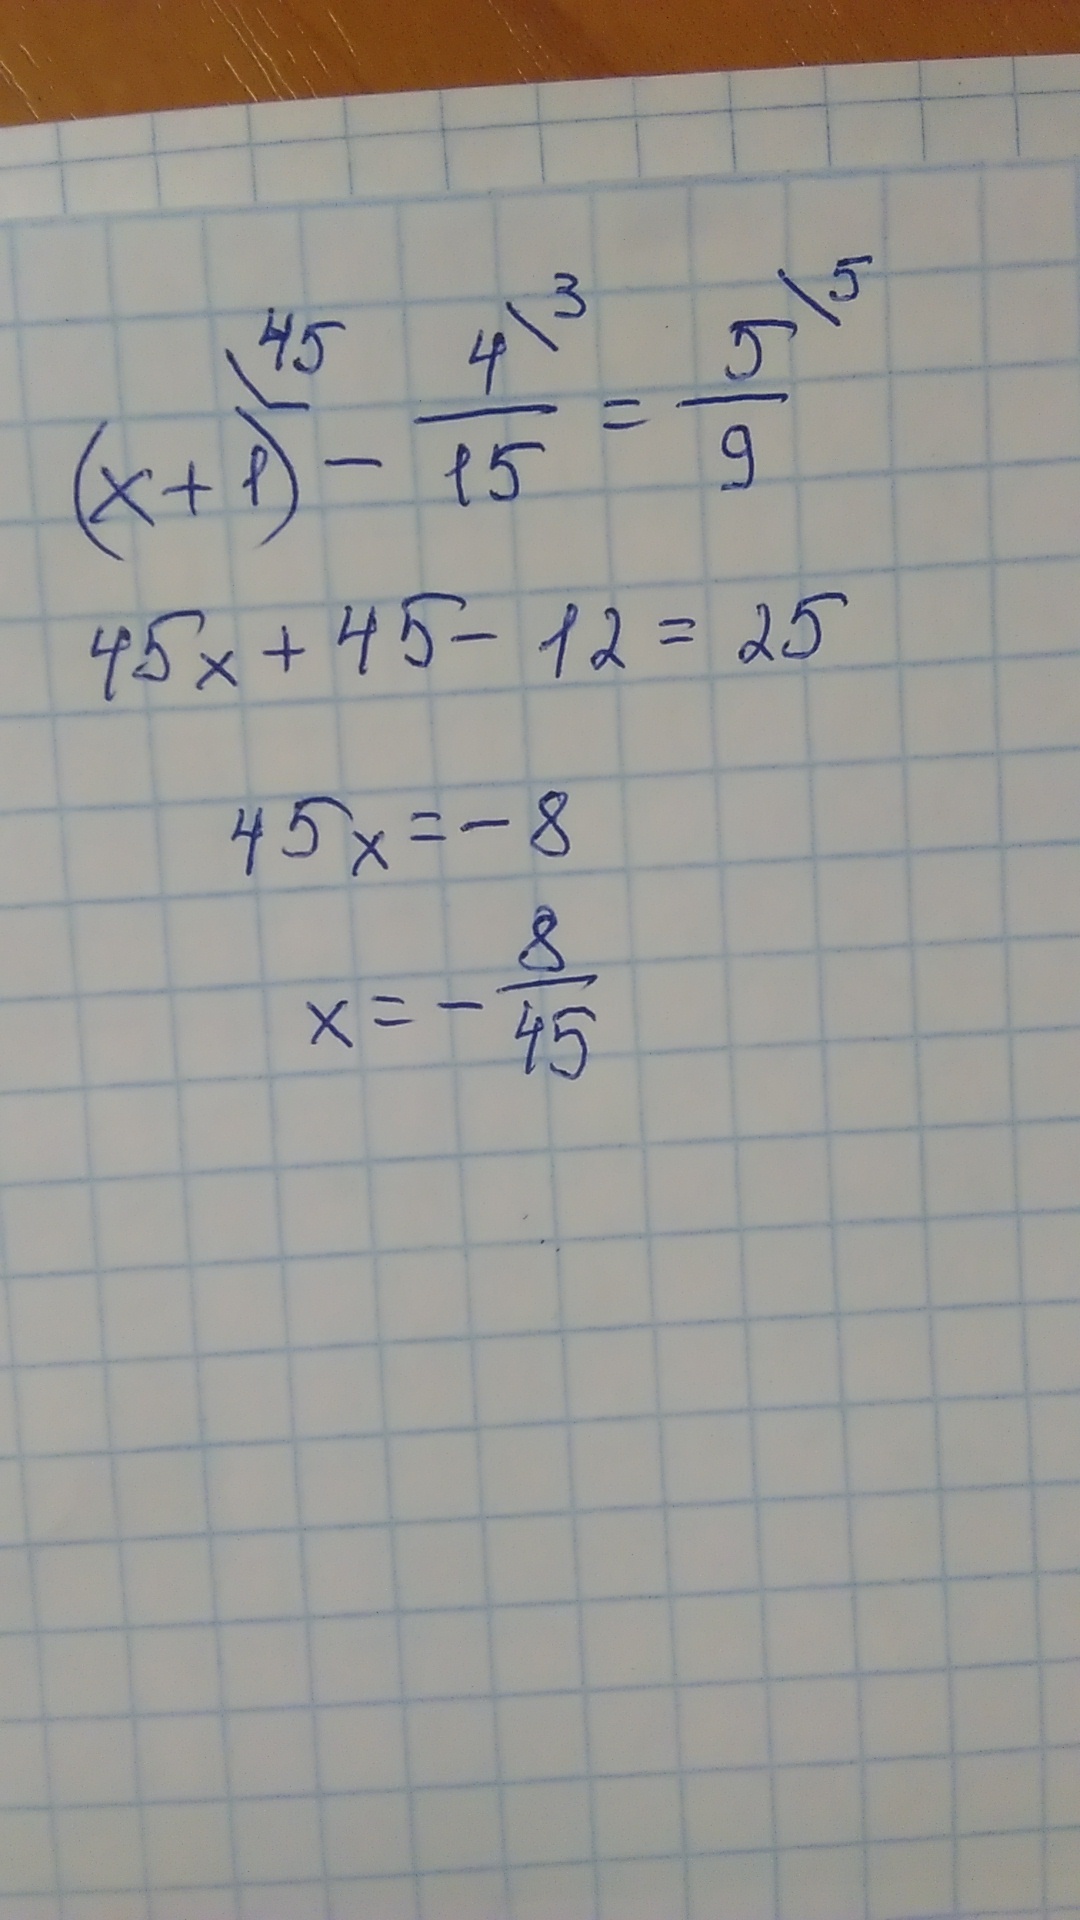 (x+1)\45 - 4\3/15 = 5\5/9
45x + 45 - 12 = 25
45x = -8
x = - 8/45